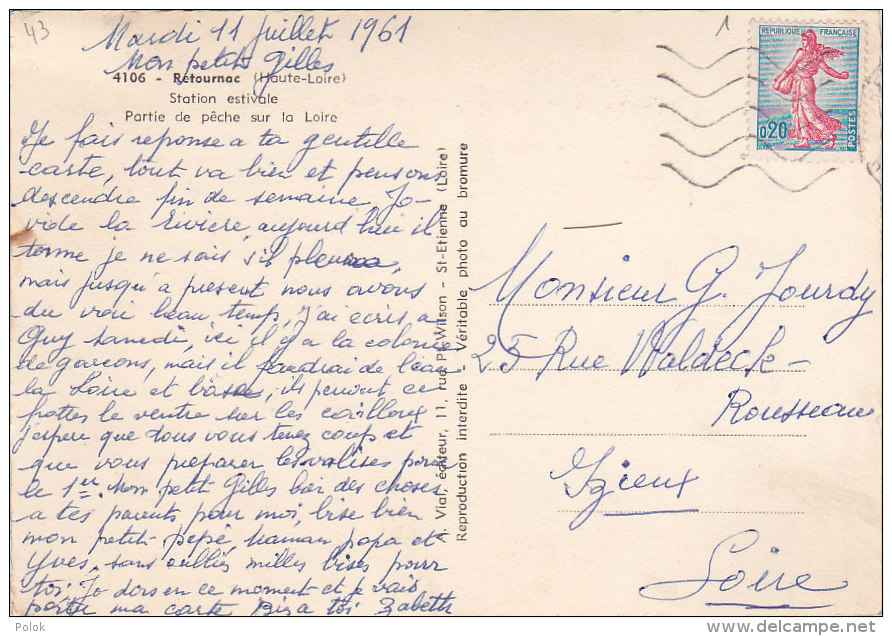 43
1
Mardi 11 Juillet 1961
Mon petit Gilles
4106 - Retournac (Haute-Loire)
Station estivale
Partie de pêche sur la Loire
Je fais reponse a ta gentille
carte, tout va bien et pensons
descendre fin de semaine Jo-
vide la rivière, aujourd'hui il
tonne je ne sais s'il
mais jusqu'a present nous avons
du vrai beau temps, j'ai ecris a
Guy samedi, ici il y a la colonie
de garcons, mais il faudrai de l'eau
la Loire et basse, ils peuvent ce
frotter le ventre sur les cailloux
j'espere que tous vous tenez coup et
que vous preparer les valises pour
le 1er. Mon petit Gilles bien des choses
a tes parents pour moi, bise bien
mon petit pépé, maman papa et
Yves, sans oublier milles bises pour
toi, Jo dors en ce moment et je vais
porter ma carte Bise a toi Zabeth
A. Vial, éditeur, 11, rue Pt-Wilson - St-Etienne (Loire)
Reproduction interdite - Véritable photo au bromure
REPUBLIQUE FRANÇAISE
0,20
POSTES
Monsieur G. Jourdy
25 Rue Waldeck-
Rousseau
Izieux
Loire
Publisher: Polok
delcampe.net